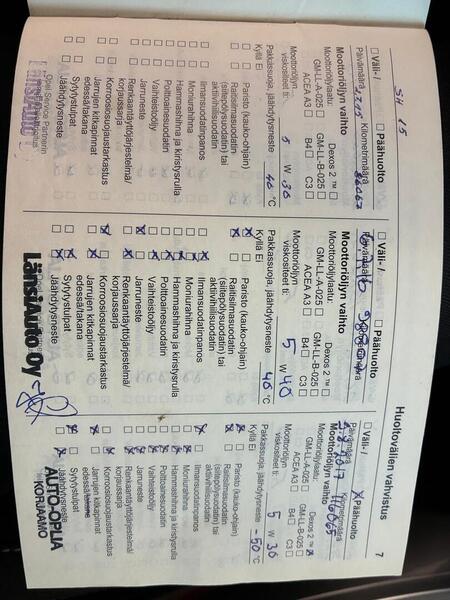 Huoltovälien vahvistus
7
SH 15
□ Väli- / □ Päähuolto
Päivämäärä Kilometrimäärä
86067
Moottoriöljyn vaihto
Moottoriöljylaatu: Dexos 2 ™ □
GM-LL-A-025 □ GM-LL-B-025 □
ACEA A3 □ B4 □ C3 □
Moottoriöljyn
viskositeetti: 5 W 30
Pakkassuoja, jäähdytysneste 40 °C
Kyllä Ei
□ □ Paristo (kauko-ohjain)
□ □ Raitisilmasuodatin
(siitepölysuodatin) tai
aktiivihiilisuodatin
□ □ Ilmansuodatinpanos
□ □ Moniurahihna
□ □ Hammashihna ja kiristysrulla
□ □ Polttoainesuodatin
□ □ Vaihteistoöljy
□ □ Jarruneste
□ □ Renkaantäyttöjärjestelmä/
korjaussarja
□ □ Korroosiosuojaustarkastus
□ □ Jarrujen kitkapinnat
edessä/takana
□ □ Sytytystulpat
□ □ Jäähdytysneste
Opel Service Partnerin
□ Väli- / □ Päähuolto
Moottoriöljyn vaihto
Moottoriöljylaatu: Dexos 2 ™ □
GM-LL-A-025 □ GM-LL-B-025 □
ACEA A3 □ B4 □ C3 □
Moottoriöljyn
viskositeetti: 5 W 40
Pakkassuoja, jäähdytysneste 40 °C
Kyllä Ei
Paristo (kauko-ohjain)
Raitisilmasuodatin
(siitepölysuodatin) tai
aktiivihiilisuodatin
Ilmansuodatinpanos
Moniurahihna
Hammashihna ja kiristysrulla
Polttoainesuodatin
Vaihteistoöljy
Jarruneste
Renkaantäyttöjärjestelmä/
korjaussarja
Korroosiosuojaustarkastus
Jarrujen kitkapinnat
edessä/takana
Sytytystulpat
Jäähdytysneste
LänsiAuto Oy
□ Väli- / X Päähuolto
Päivämäärä Kilometrimäärä
116065
Moottoriöljyn vaihto
Moottoriöljylaatu: Dexos 2 ™
GM-LL-A-025 □ GM-LL-B-025 □
ACEA A3 □ B4 □ C3 □
Moottoriöljyn
viskositeetti: 5 W 30
Pakkassuoja, jäähdytysneste -50 °C
Kyllä Ei
Paristo (kauko-ohjain)
Raitisilmasuodatin
(siitepölysuodatin) tai
aktiivihiilisuodatin
Ilmansuodatinpanos
Moniurahihna
Hammashihna ja kiristysrulla
Polttoainesuodatin
Vaihteistoöljy
Jarruneste
Renkaantäyttöjärjestelmä/
korjaussarja
Korroosiosuojaustarkastus
Jarrujen kitkapinnat
edessä/takana
Sytytystulpat
Jäähdytysneste
AUTO-OPLIA
KORJAAMO